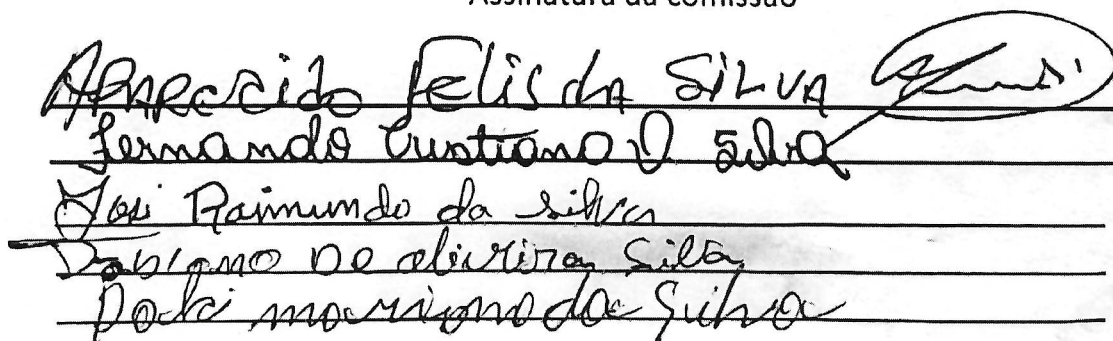 Assinatura da comissão
Aparecido Felis da Silva
Fernando Cristiano O Silva
José Raimundo da Silva
Fabiano De oliveira Silva
mariano da Silva